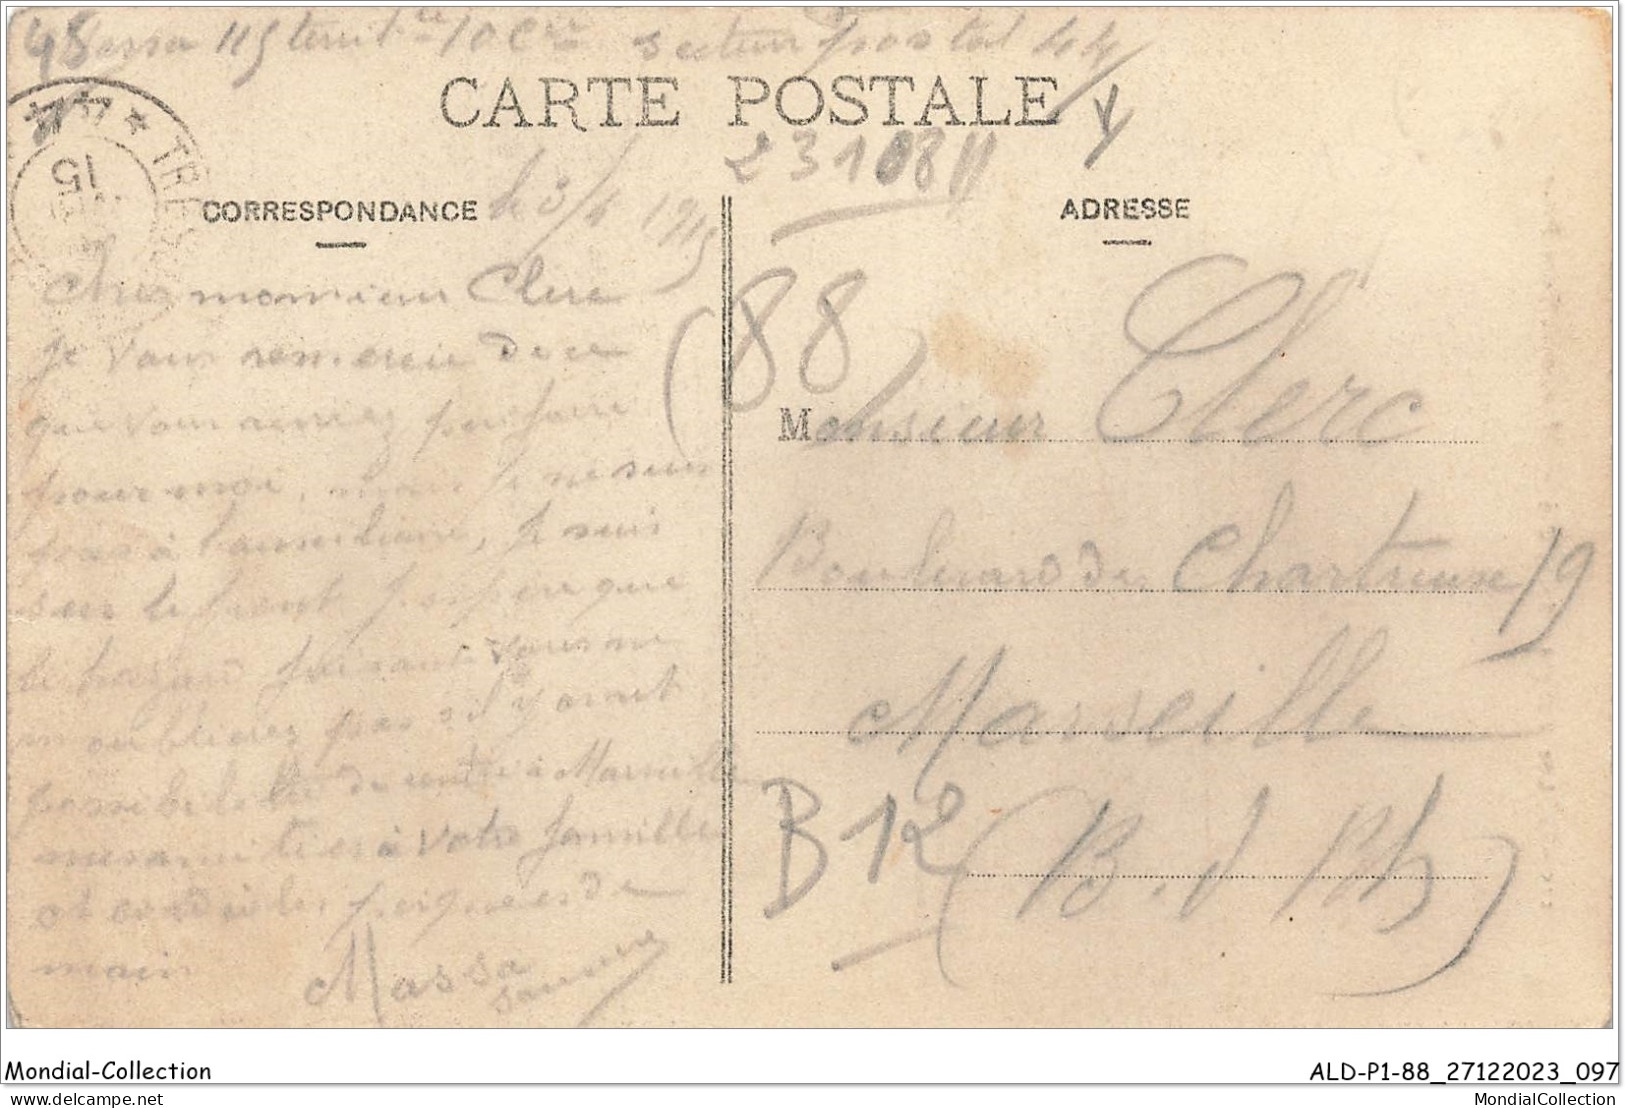 Massa 115 territ le 10 Cie secteur postal 44
48
CARTE POSTALE
231 08
44 * TRÉSOR
15
CORRESPONDANCE
le 3/4 1915
ADRESSE
Cher monsieur Clerc
Je vous remercie de ce
que vous auriez pu faire
pour moi, mais je ne suis
pas à l'auxiliaire, je suis
sur le front j'espère que
le hazard faisant vous ne
m'oublierez pas s'il y avait
possibilité de rentré à Marseille
mes amitiés à votre famille
et cordiales poignées de
main
Massa
(88)
Monsieur Clerc
Boulevard des Chartreux 19
Marseille
B12
(B. d Rh)
Mondial-Collection
ALD-P1-88_27122023_097
Mondial-Collection.net
MondialCollection